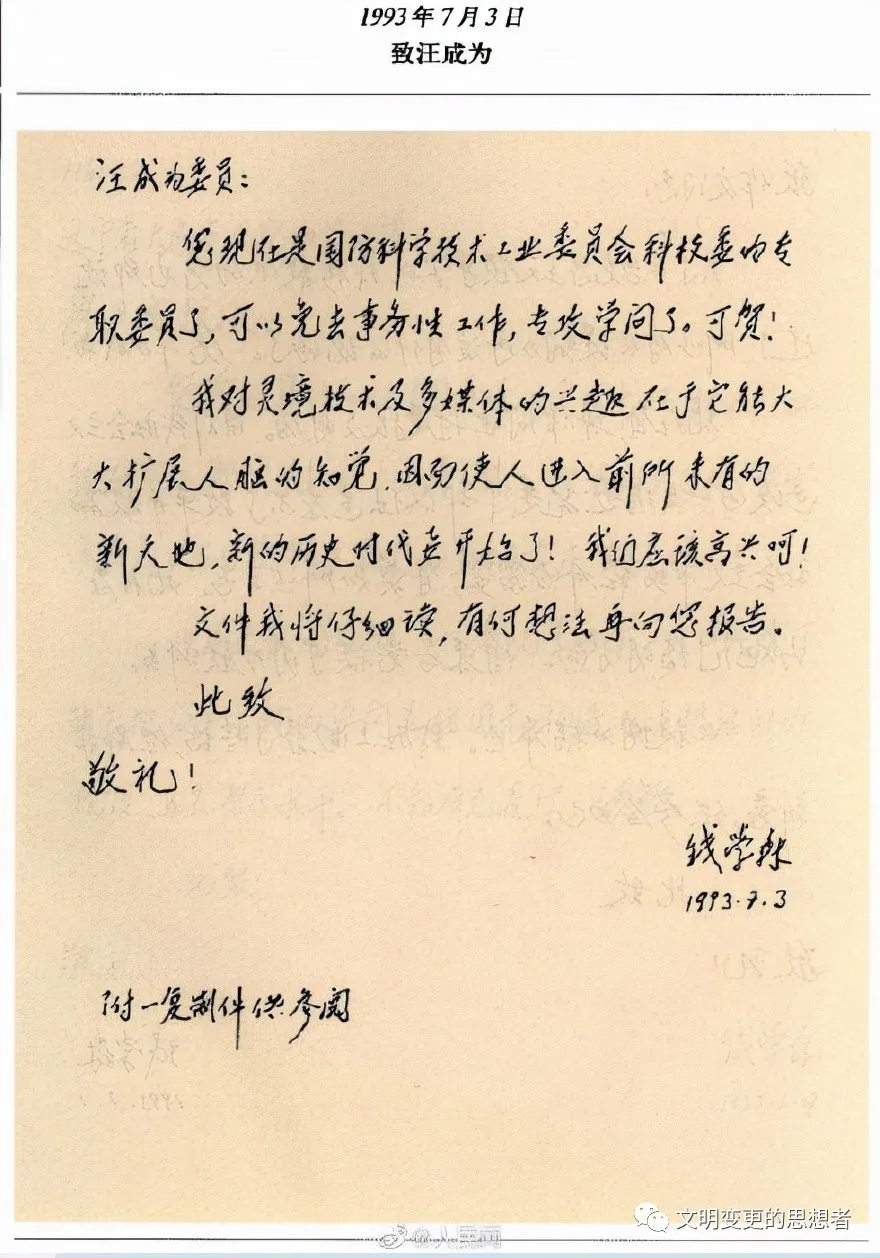 1993年7月3日
致汪成为
汪成为委员：
您现在是国防科学技术工业委员会科技委的专
职委员了，可以免去事务性工作，专攻学问了。可贺！
我对灵境技术及多媒体的兴趣在于它能大
大扩展人脑的知觉，因而使人进入前所未有的
新天地，新的历史时代要开始了！我们应该高兴呵！
文件我将仔细读，有何想法再向您报告。
此致
敬礼！
钱学森
1993.7.3
附一复制件供参阅
文明变更的思想者
@人民网